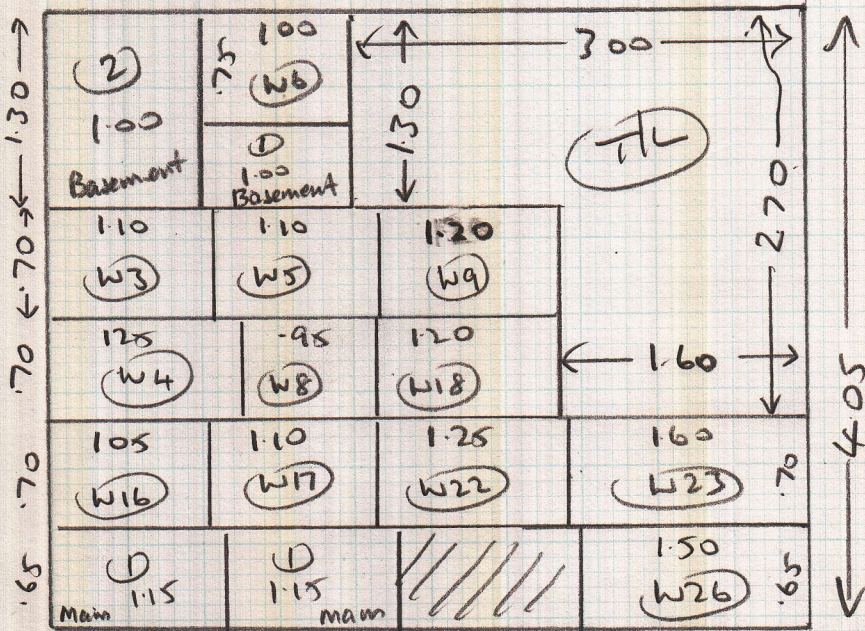 1.30
2
1.00
Basement
.75
100
W6
1
1.00
Basement
1.30
300
T/L
270
4.05
.70
1.10
W3
1.10
W5
1.20
W9
.70
125
W4
.95
W8
1.20
W18
1.60
.70
105
W16
1.10
W17
1.25
W22
1.60
W23
.70
.65
1
1.15
Main
1
1.15
main
1.50
W26
.65